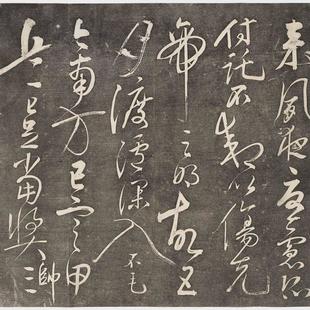 來夙夜憂慮恐
付託不效以傷先
帝之明故五
月渡瀘深入不毛
今南方已定甲
兵已足當獎帥三